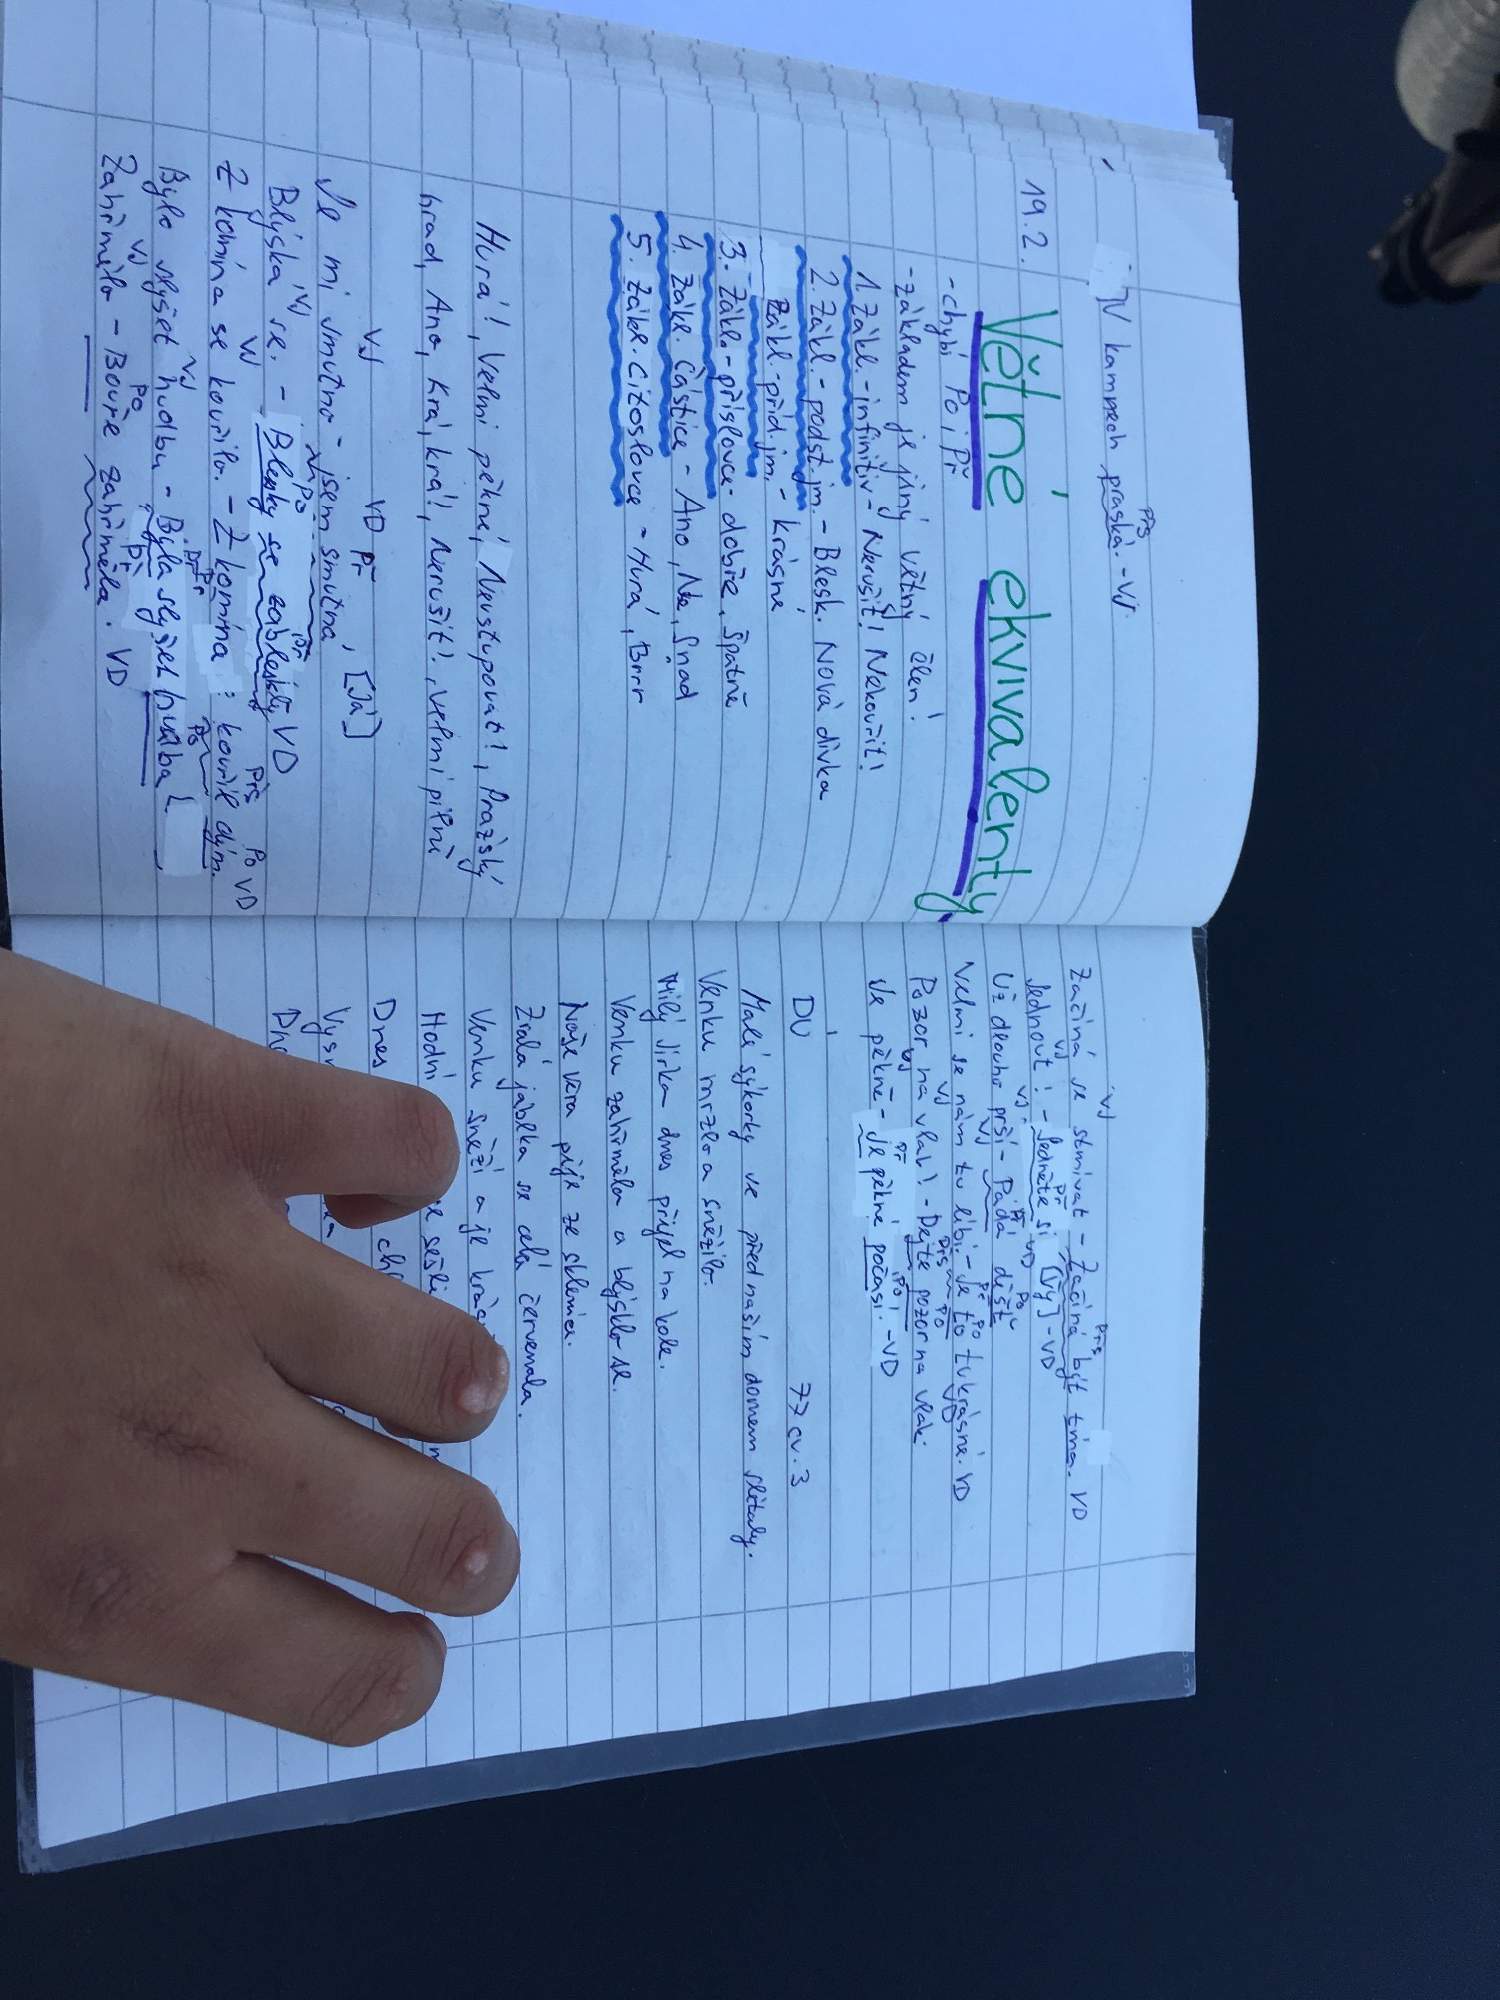 V kamnech praská. - VJ.
19.2.
Větné ekvivalenty
- chybí Po i Př
- základem je jiný větný člen!
1. Zákl. - infinitiv - Nerušit! Nekouřit!
2. Zákl. - podst. jm. - Blesk. Nová dívka
Zákl. - příd. jm. - krásné
3. Zákl. - příslovce - dobře, špatně
4. Zákl. částice - Ano, Ne, Snad
5. Zákl. citoslovce - Hurá, Brrr
Hurá!, Velmi pěkné, Neustupovat!, Pražský
hrad, Ano, Krá, krá!, Nerušit!, Velmi pilní
VJ VD Př , [Já]
Je mi smutno - jsem smutná
Blýská se. - Blesky se zableskly VD
Z komína se kouřilo. - Z komína kouřil dým. VD
Bylo slyšet hudbu - Byla slyšet hudba
Zahřmělo - Bouře zahřměla. VD
Začíná se stmívat - Začíná být tma. VD
Jednout! - Jedněte si [Vy] - VD
Už dlouho prší - Padá déšť
Velmi se nám tu líbí. - Je to tu krásné. VD
Pozor na vlak! - Dejte pozor na vlak.
Je pěkně - Je pěkné počasí. - VD
DÚ 77 cv. 3
Malé sýkorky ve před naším domem slétaly.
Venku mrzlo a sněžilo.
Milý Jirka dnes přijel na kole.
Venku zahřmělo a blýsklo se.
Naše Věra pije ze sklenice.
Zralá jablka se celá červenala.
Venku sněží a je krás
Hodní
Dnes